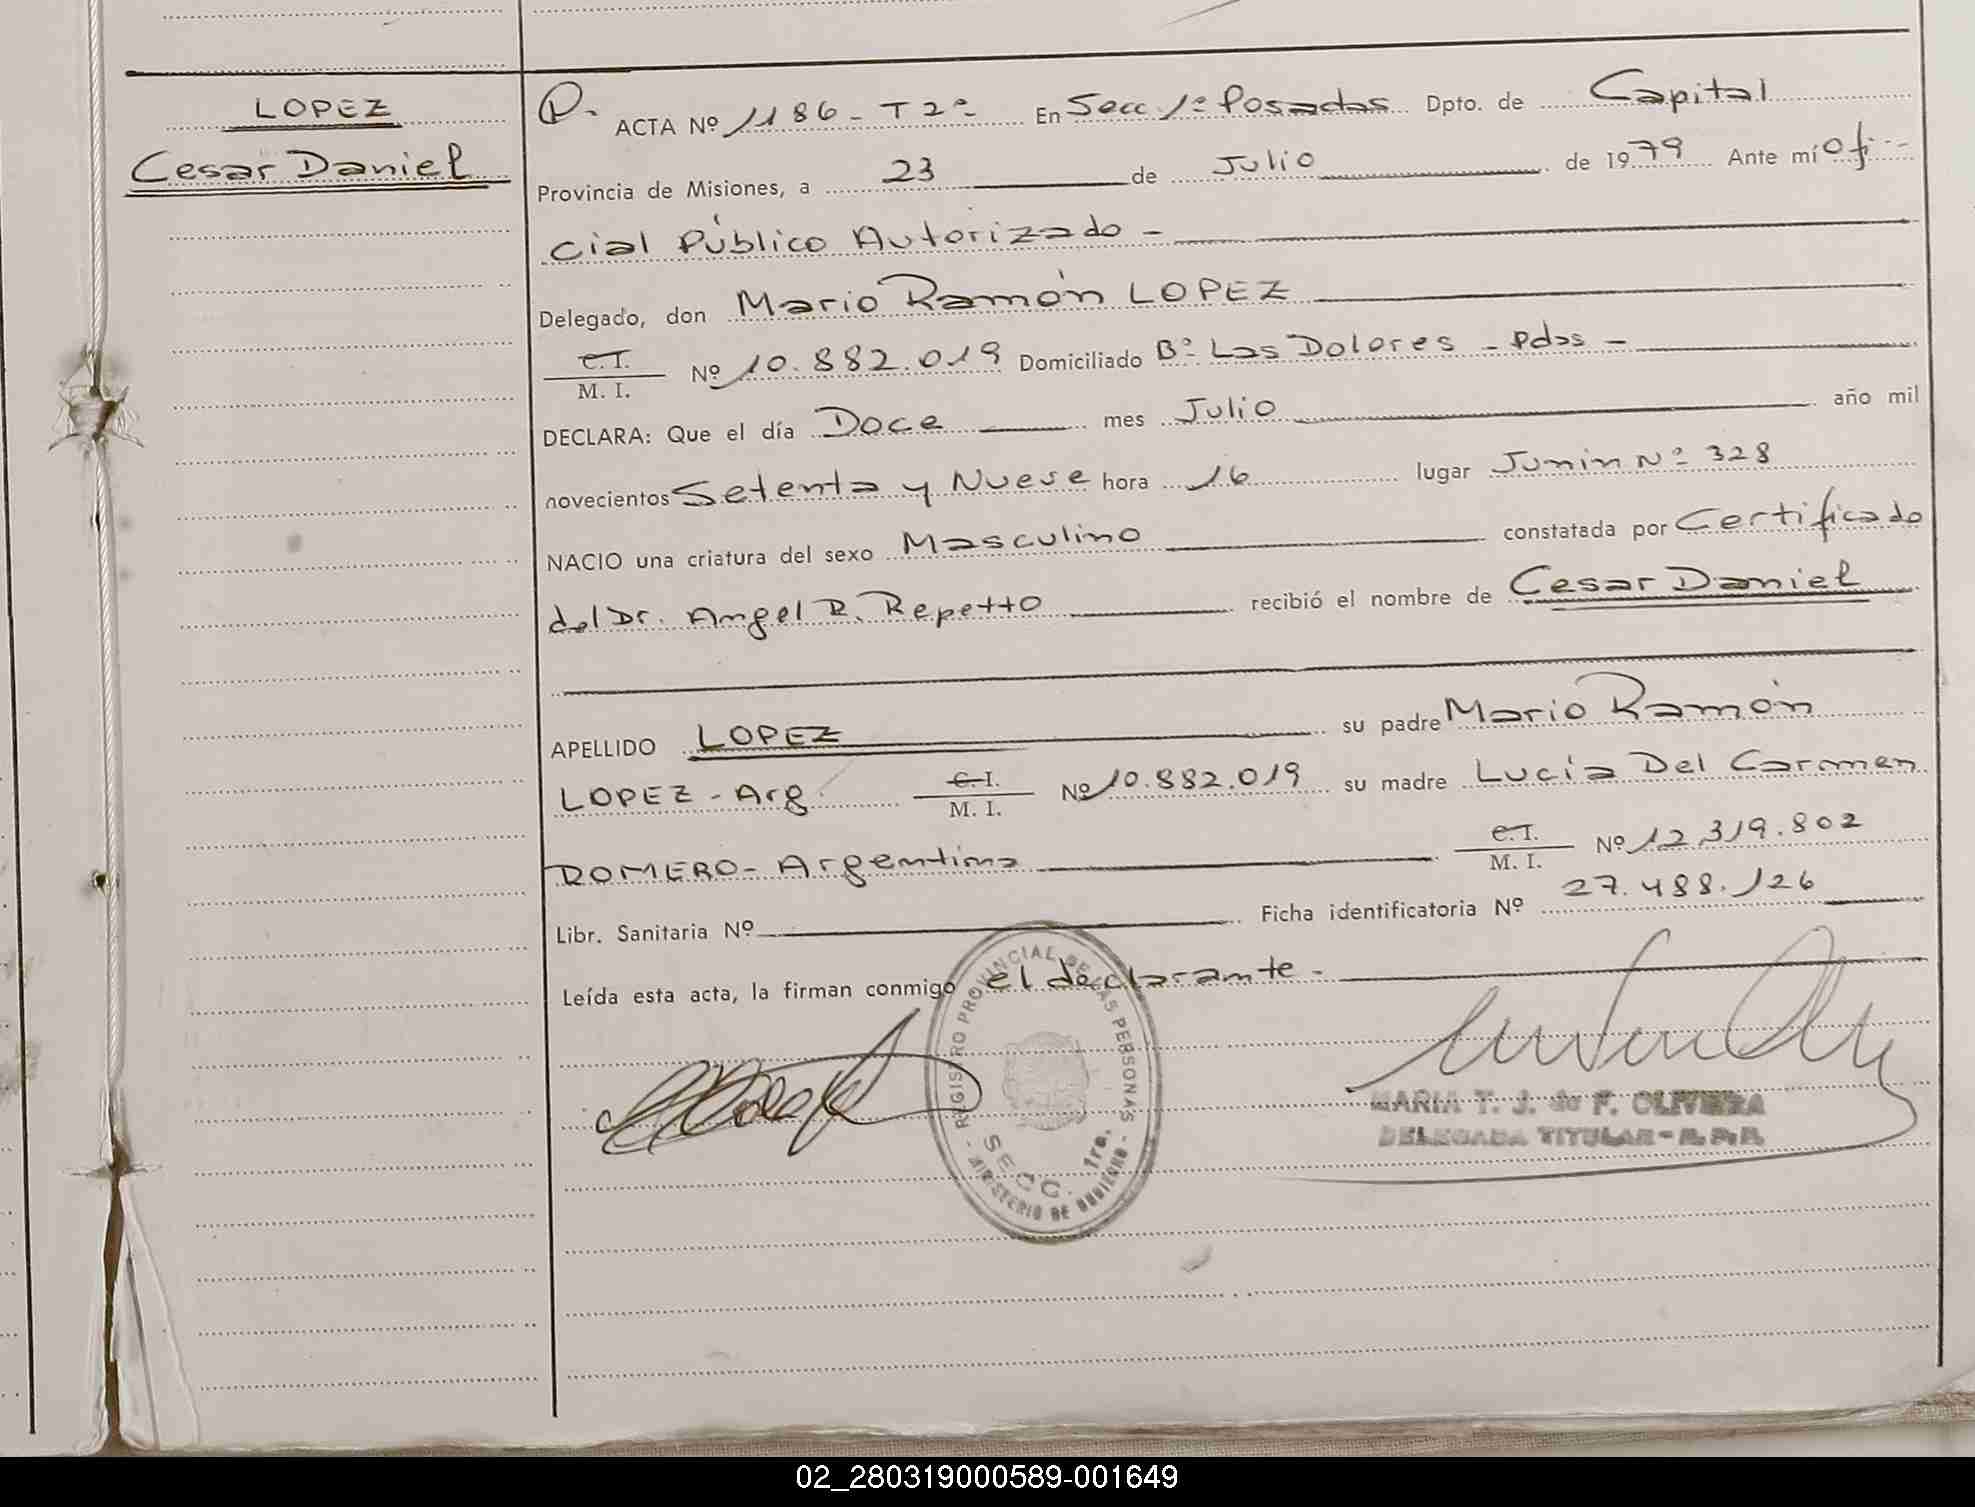 LOPEZ
Cesar Daniel
P. ACTA Nº 1186 - T 2º - En Secc 1º Posadas Dpto. de Capital
Provincia de Misiones, a 23 de Julio de 1979 Ante mí Ofi-
cial Público Autorizado -
Delegado, don Mario Ramón LOPEZ
C.I.
M. I. Nº 10.882.019 Domiciliado Bº Las Dolores - Pdas -
DECLARA: Que el día Doce mes Julio año mil
novecientos Setenta y Nueve hora 16 lugar Junin Nº 328
NACIO una criatura del sexo Masculino constatada por Certificado
del Dr. Angel R. Repetto recibió el nombre de Cesar Daniel
APELLIDO LOPEZ su padre Mario Ramón
LOPEZ - Arg. C.I. M. I. Nº 10.882.019 su madre Lucía Del Carmen
ROMERO - Argentina C.I. M. I. Nº 12.319.802
Libr. Sanitaria Nº Ficha identificatoria Nº 27.488.126
Leída esta acta, la firman conmigo el declarante -
REGISTRO PROVINCIAL DE LAS PERSONAS
SECC. 1ra.
- MINISTERIO DE GOBIERNO -
MARIA T. J. de F. OLIVERA
DELEGADA TITULAR - R. P. P.
02_280319000589-001649